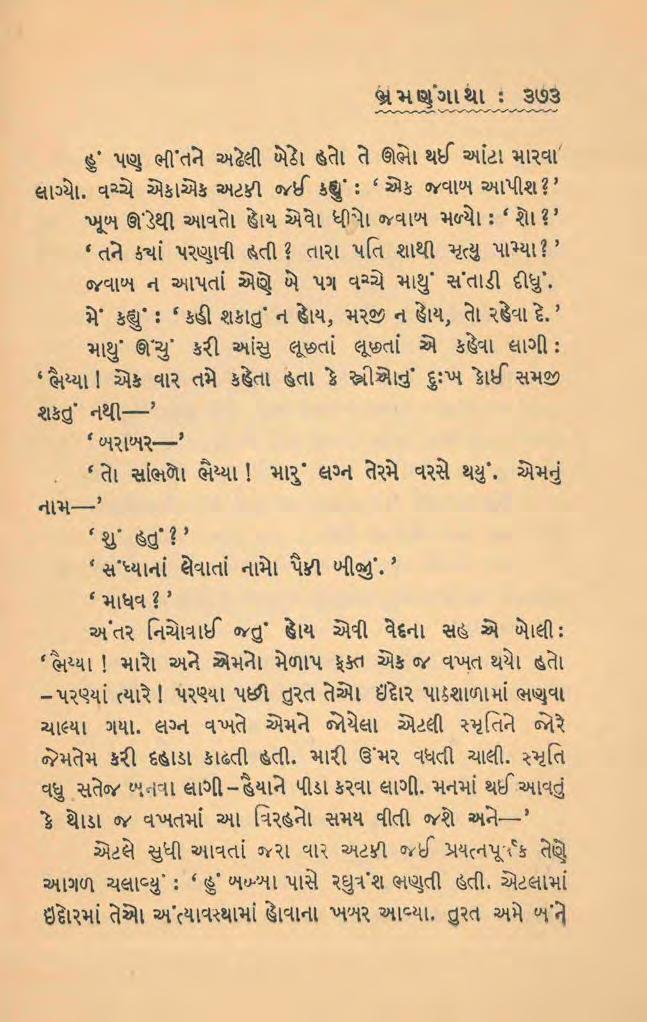 ભ્રમણગાથા : ૩૭૩
હું પણ ભીંતને અઢેલી બેઠો હતો તે ઊભો થઈ આંટા મારવા
લાગ્યો. વચ્ચે એકાએક અટકી જઈ કહ્યું : ‘એક જવાબ આપીશ?’
ખૂબ ઊંડેથી આવતો હોય એવો ધીમો જવાબ મળ્યો : ‘શો?’
‘તને ક્યાં પરણાવી હતી? તારા પતિ શાથી મૃત્યુ પામ્યા?’
જવાબ ન આપતાં એણે બે પગ વચ્ચે માથું સંતાડી દીધું.
મેં કહ્યું : ‘કહી શકાતું ન હોય, મરજી ન હોય, તો રહેવા દે.’
માથું ઊંચું કરી આંસુ લૂછતાં લૂછતાં એ કહેવા લાગી :
‘ભૈય્યા! એક વાર તમે કહેતા હતા કે સ્ત્રીઓનું દુઃખ કોઈ સમજી
શકતું નથી—’
‘બરાબર—’
‘તો સાંભળો ભૈય્યા! મારું લગ્ન તેરમે વરસે થયું. એમનું
નામ—’
‘શું હતું?’
‘સંધ્યાનાં લેવાતાં નામો પૈકી બીજું.’
‘માધવ?’
અંતર નિચોવાઈ જતું હોય એવી વેદના સહ એ બોલી :
‘ભૈય્યા! મારો અને એમનો મેળાપ ફક્ત એક જ વખત થયો હતો
–પરણ્યાં ત્યારે! પરણ્યા પછી તુરત તેઓ ઇંદોર પાઠશાળામાં ભણવા
ચાલ્યા ગયા. લગ્ન વખતે એમને જોયેલા એટલી સ્મૃતિને જોરે
જેમતેમ કરી દહાડા કાઢતી હતી. મારી ઉંમર વધતી ચાલી. સ્મૃતિ
વધુ સતેજ બનવા લાગી–હૈયાને પીડા કરવા લાગી. મનમાં થઈ આવતું
કે થોડા જ વખતમાં આ વિરહનો સમય વીતી જશે અને—’
એટલે સુધી આવતાં જરા વાર અટકી જઈ પ્રયત્નપૂર્વક તેણે
આગળ ચલાવ્યું : ‘હું બબ્બા પાસે રઘુવંશ ભણતી હતી. એટલામાં
ઇંદોરમાં તેઓ અંત્યાવસ્થામાં હોવાના ખબર આવ્યા. તુરત અમે બંને